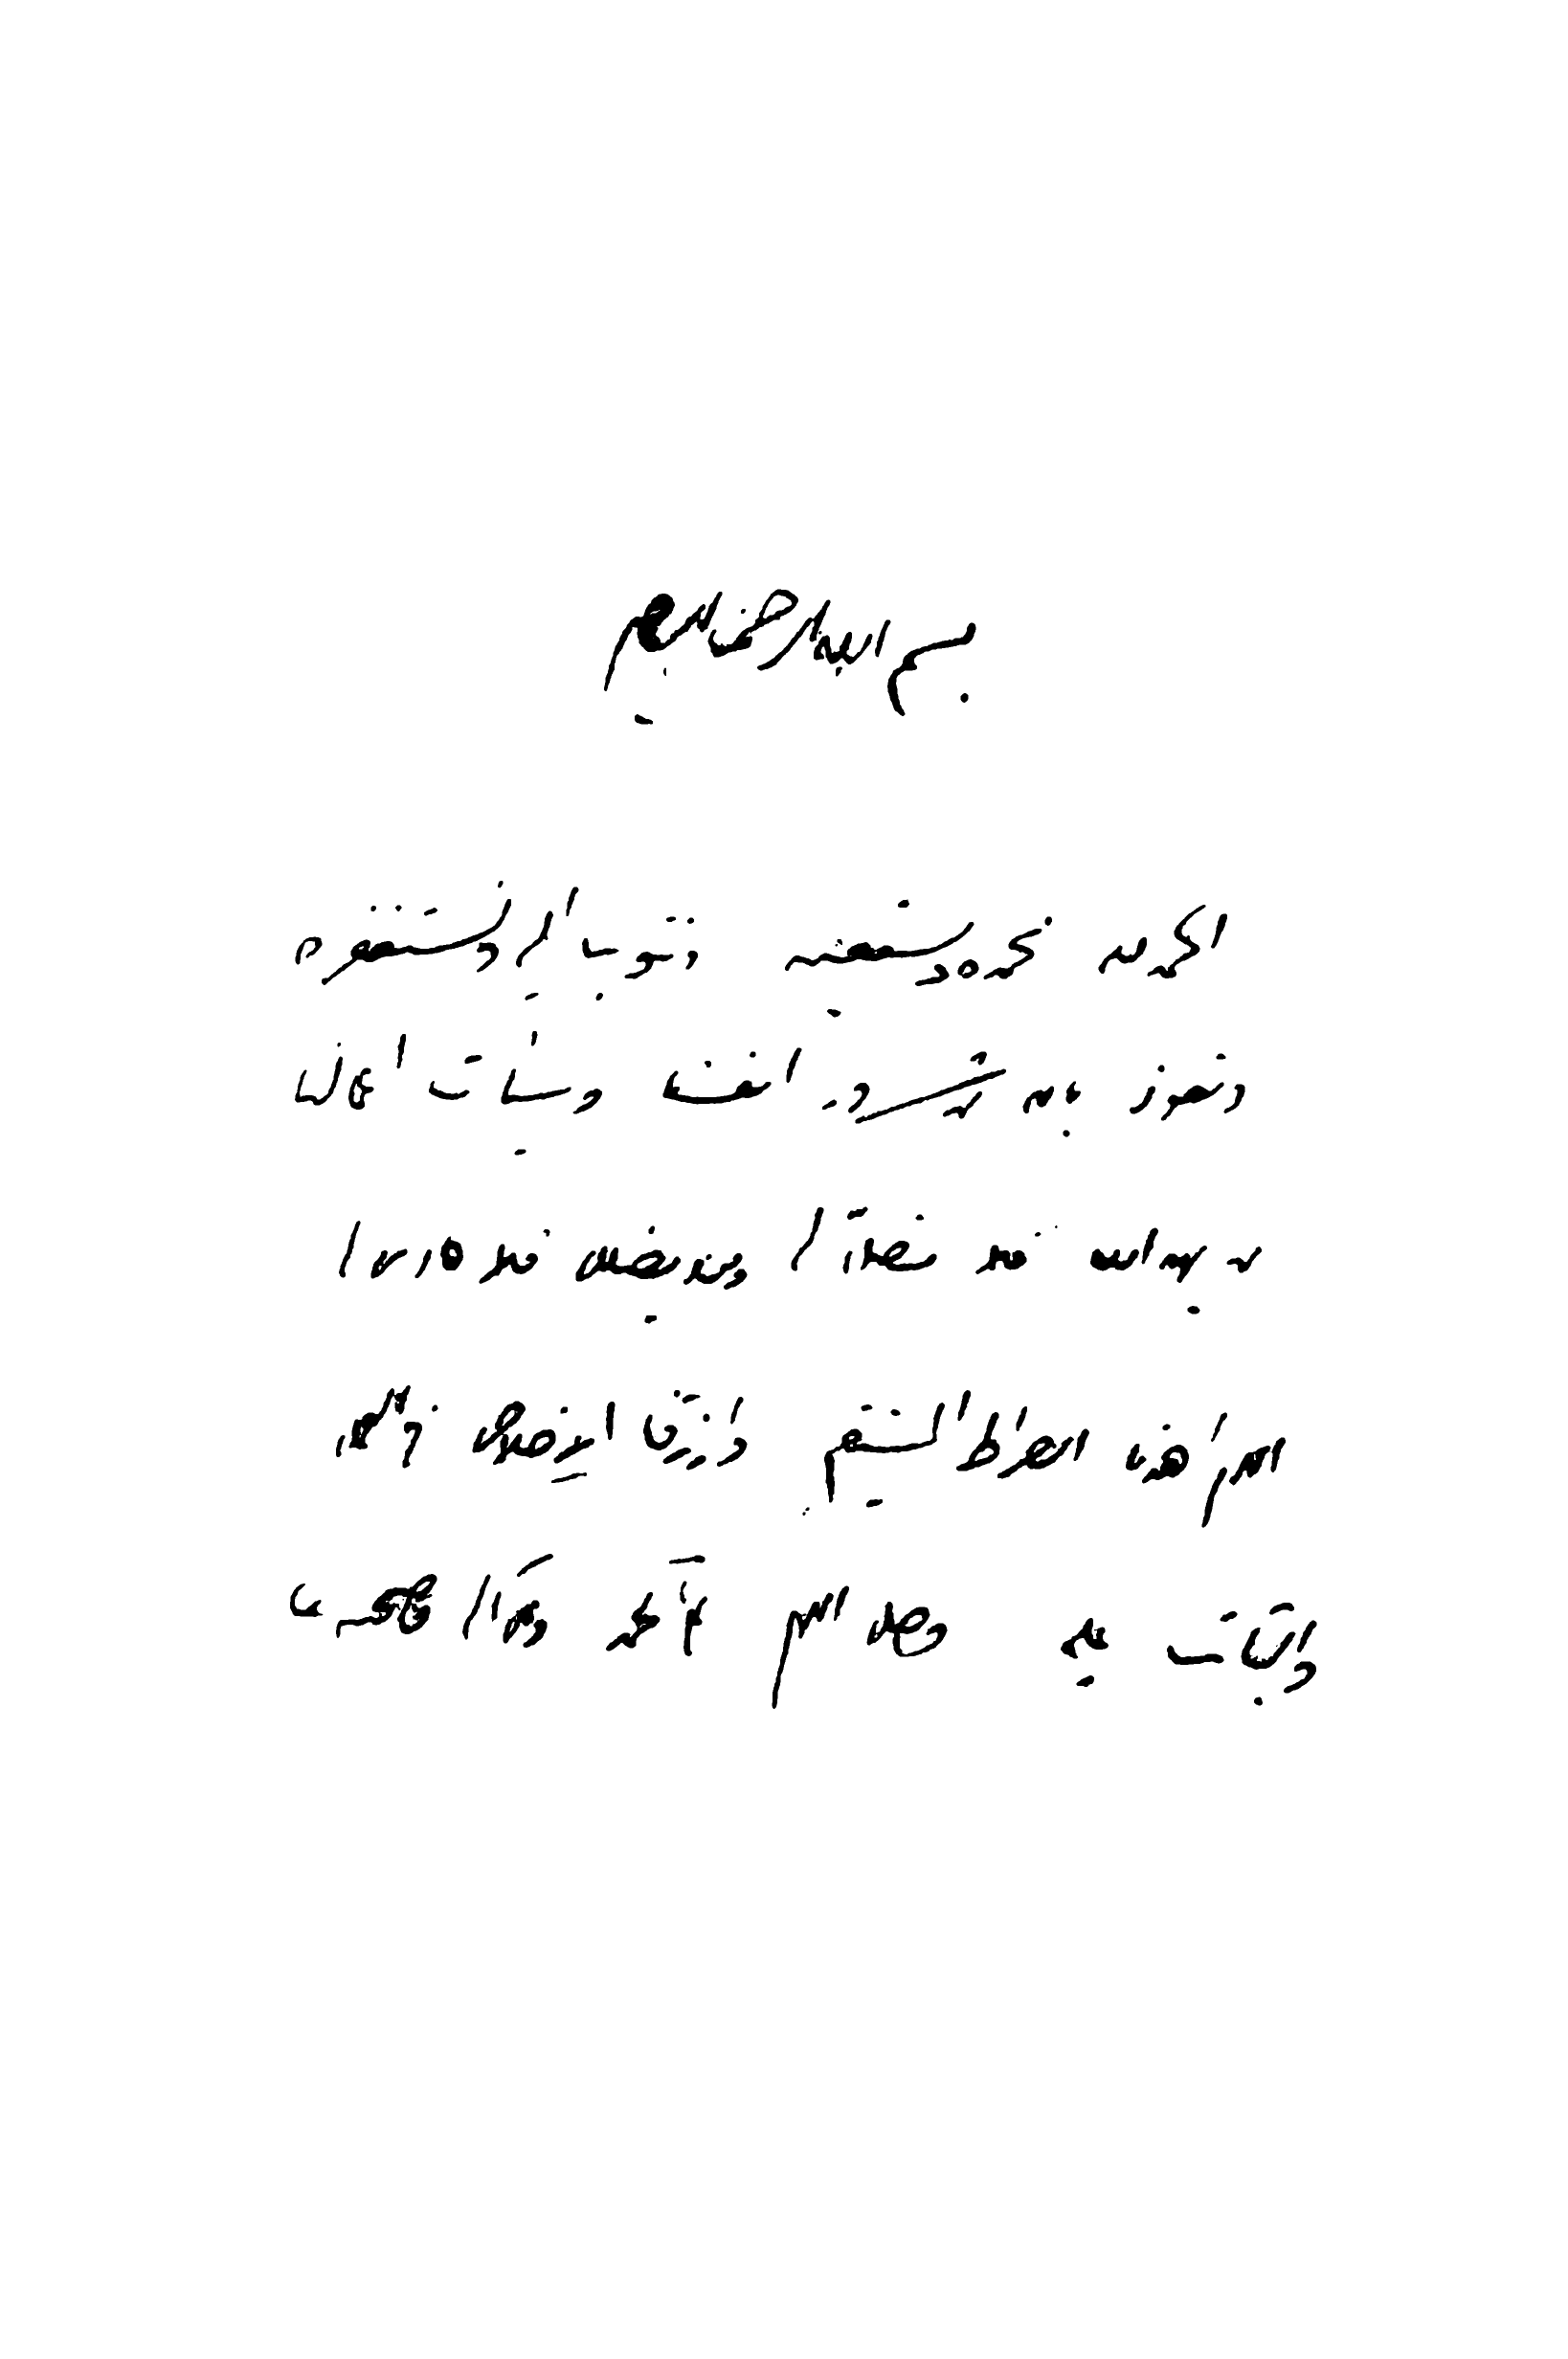 بسم الله الرحمن الرحيم
الحمد لله نحمده ونستعينه ونتوب إليه ونستغفره
ونعوذ بالله من شرور أنفسنا وسيئات أعمالنا
من يهد الله فلا مضلّ له ومن يضلل فلا هادي له
اللهم اهدنا الصراط المستقيم وارزقنا الإخلاص في العمل
والثبات عليه وصل اللهم على محمد وآله